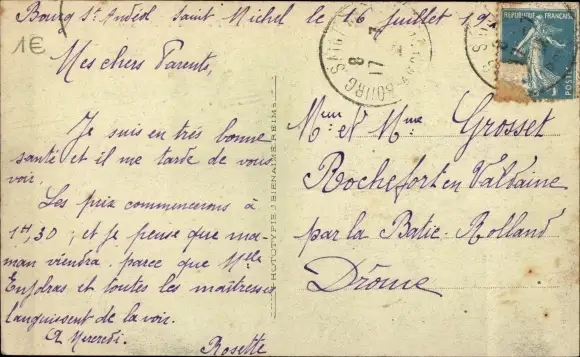 Bourg St Andéol Saint Michel le 16 juillet 19
1€
Mes chers Parents,
Je suis en très bonne
santé et il me tarde de vous
voir.
Les prix commencerons à
1H,30, et je pense que ma-
man viendra parce que Mlle
Enjolras et toutes les maîtresses
languissent de la voir.
A Mercredi.
Rosette
PHOTOTYPIE J. BIENAIMÉ, REIMS
RÉPUBLIQUE FRANÇAISE
BOURG S
8
17 7
Mr et Mme Grosset
Rochefort en Valdaine
par la Batie-Rolland
Drôme